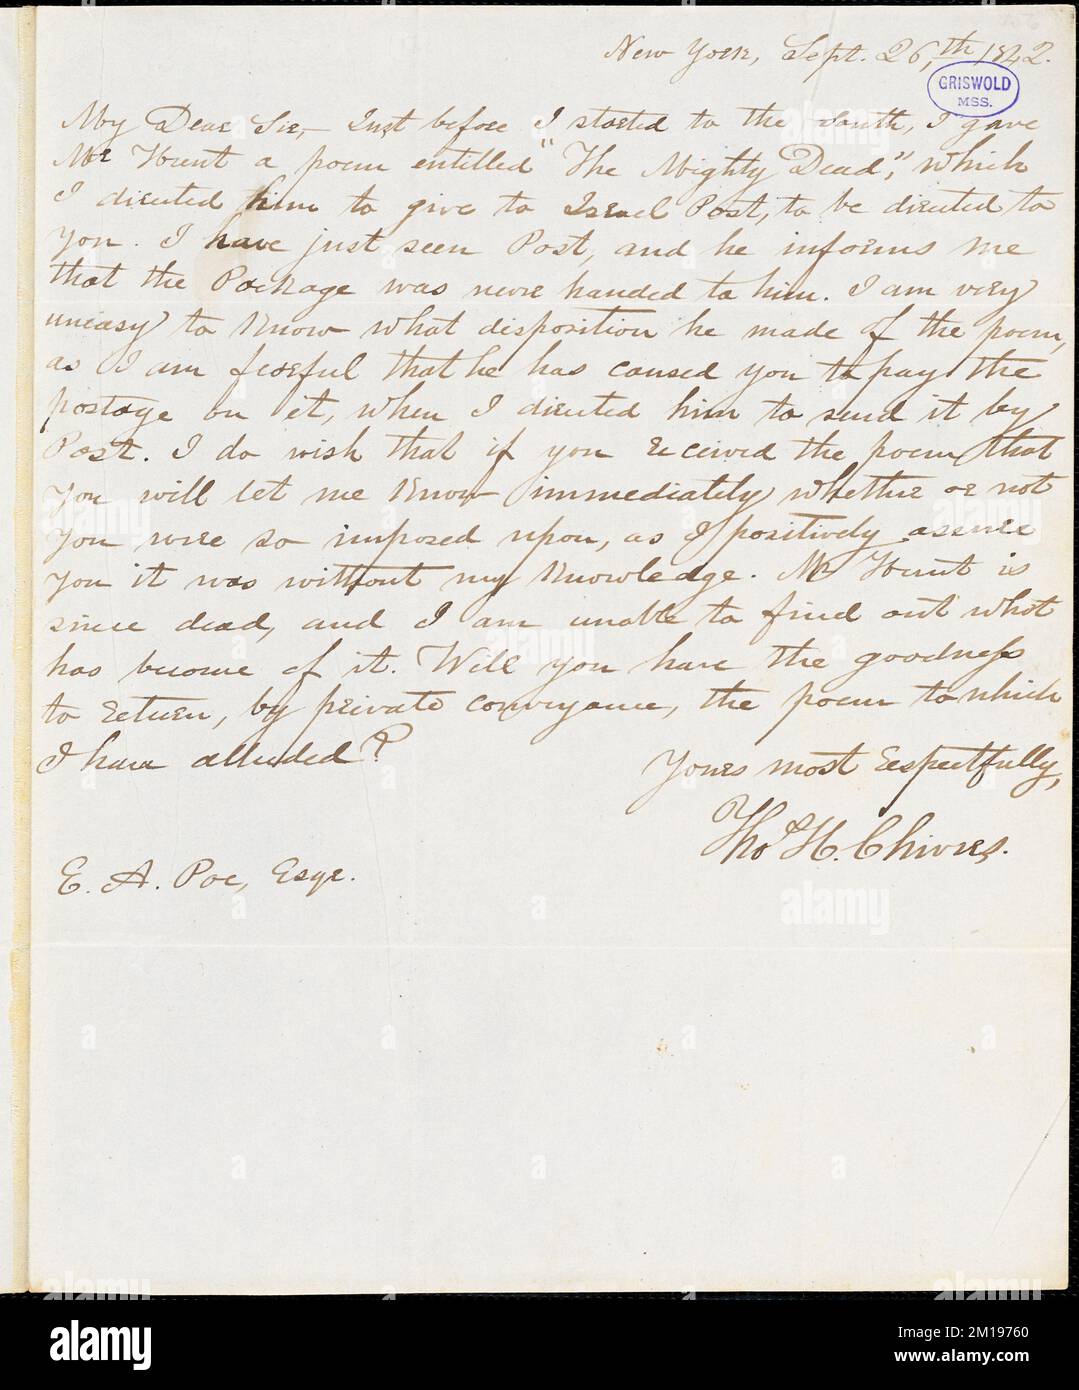 New York, Sept. 26,th 1842.
GRISWOLD
MSS.
My Dear Sir,— Just before I started to the South, I gave
Mr Hunt a poem entitled "The Mighty Dead," which
I directed him to give to Israel Post, to be directed to
you. I have just seen Post, and he informs me
that the Package was never handed to him. I am very
uneasy to know what disposition he made of the poem,
as I am fearful that he has caused you to pay the
postage on it, when I directed him to send it by
Post. I do wish that if you received the poem that
you will let me know immediately whether or not
you were so imposed upon, as I positively assure
you it was without my knowledge. Mr Hunt is
since dead, and I am unable to find out what
has become of it. Will you have the goodness
to return, by private conveyance, the poem to which
I have alluded?
Yours most respectfully,
Tho. H. Chivers.
E. A. Poe, Esqr.
alamy
Image ID: 2M19760
www.alamy.com